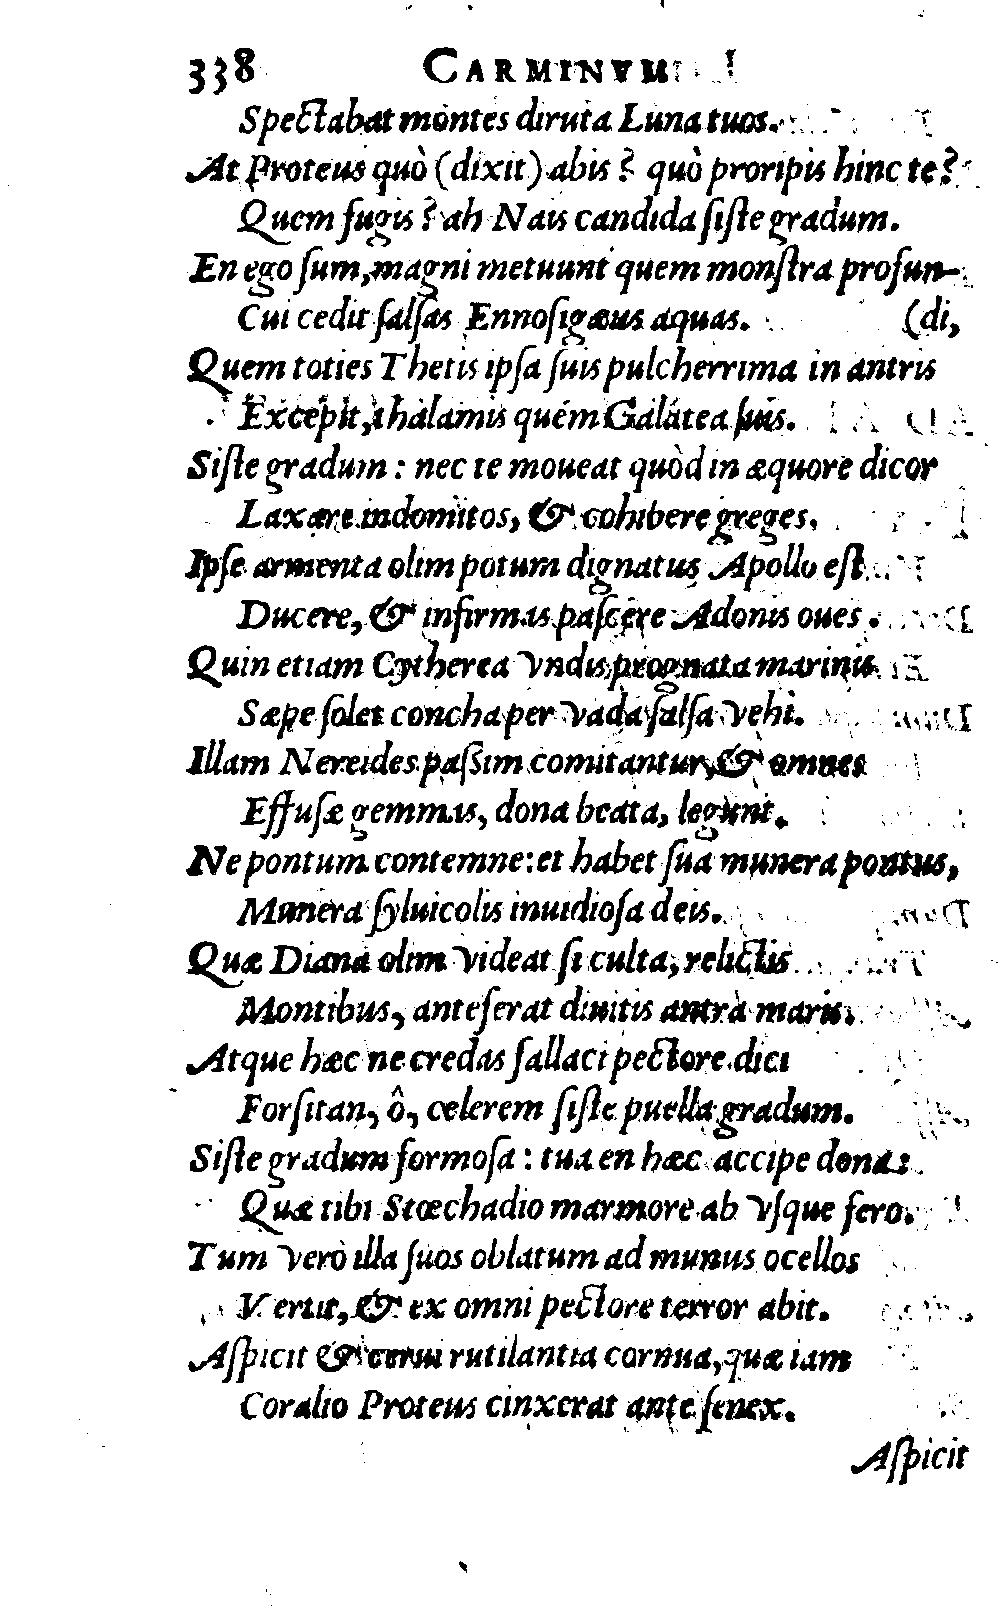 338 CARMINVM
Spectabat montes diruta Luna tuos.
At Proteus quò (dixit) abis? quò proripis hinc te?
Quem fugis? ah Nais candida siste gradum.
En ego sum, magni metuunt quem monstra profun-
Cui cedit salsas Ennosigæus aquas. (di,
Quem toties Thetis ipsa suis pulcherrima in antris
Excepit, thalamis quém Galatea suis.
Siste gradum: nec te moueat quòd in æquore dicor
Laxare indomitos, & cohibere greges.
Ipse armenta olim potum dignatus Apollo est
Ducere, & infirmas pascere Adonis oues.
Quin etiam Cytherea vndis prognata marinis
Sæpe solet concha per vada salsa vehi.
Illam Nereides passim comitantur, & omnes
Effusæ gemmas, dona beata, legunt.
Ne pontum contemne: et habet sua munera pontus,
Munera syluicolis inuidiosa deis.
Quæ Diana olim videat si culta, relictis
Montibus, anteferat diuitis antra maris.
Atque hæc ne credas fallaci pectore dici
Forsitan, ô, celerem siste puella gradum.
Siste gradum formosa: tua en hæc accipe dona:
Quæ tibi Stœchadio marmore ab vsque fero.
Tum verò illa suos oblatum ad munus ocellos
Vertit, & ex omni pectore terror abit.
Aspicit & cerui rutilantia cornua, quæ iam
Coralio Proteus cinxerat ante senex.
Aspicit